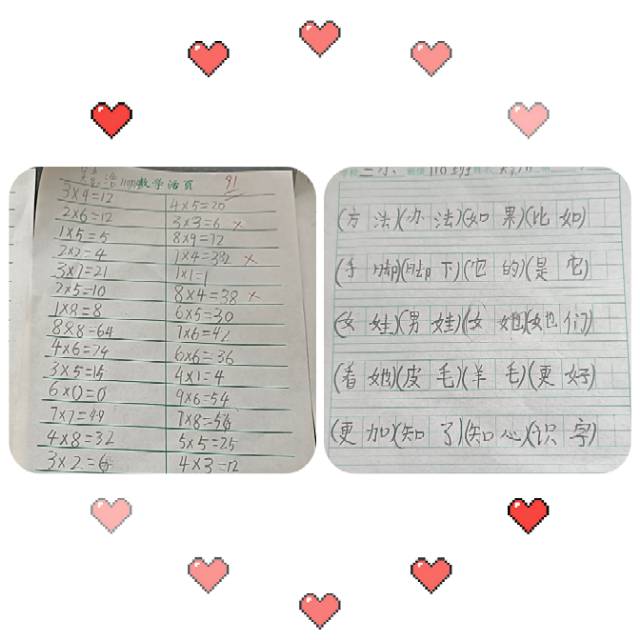 110班 数学活页 91
3×4=12
2×6=12
1×5=5
2×2=4
3×7=21
2×5=10
1×8=8
8×8=64
4×6=24
3×5=15
6×0=0
7×7=49
4×8=32
3×2=6
4×5=20
3×3=6 ×
8×9=72
1×4=32 ×
1×1=1
8×4=38 ×
6×5=30
7×6=42
6×6=36
4×1=4
9×6=54
7×8=56
5×5=25
4×3=12
三小 110班
(方法)(办法)(如果)(比如)
(手脚)(脚下)(它的)(是它)
(女娃)(男娃)(女她)(她们)
(看她)(皮毛)(羊毛)(更好)
(更加)(知了)(知心)(识字)